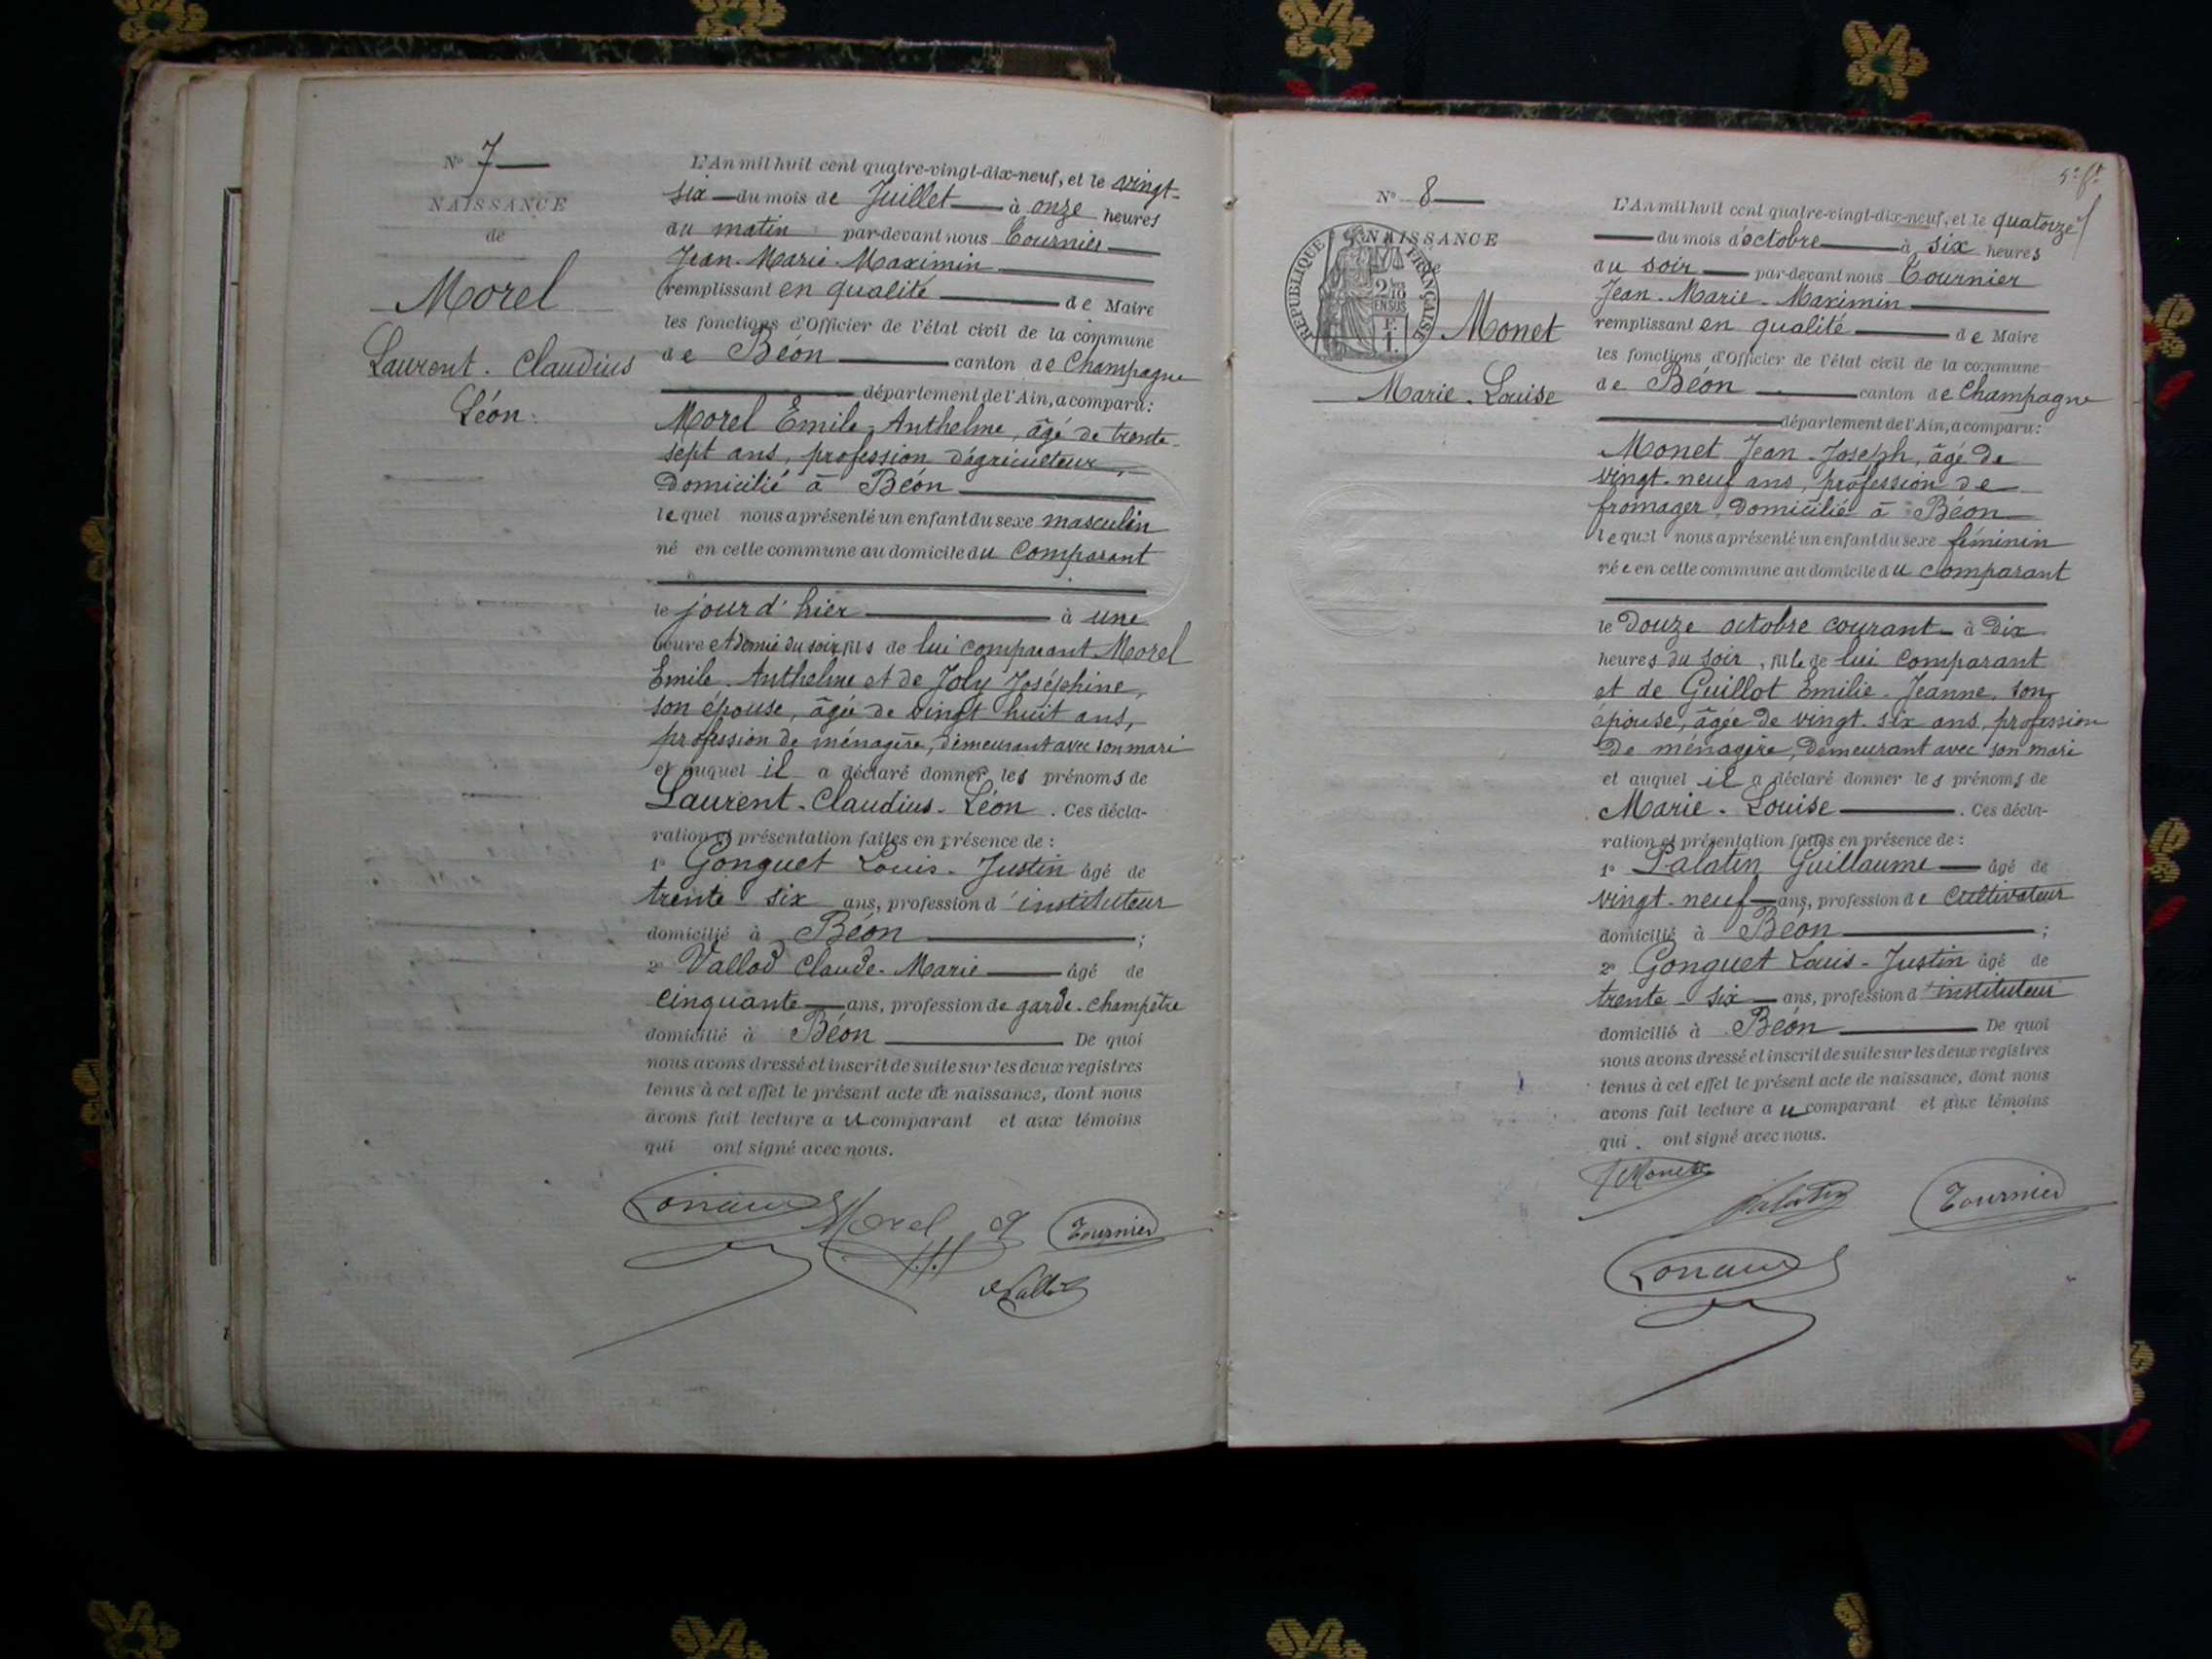 Nº 7
NAISSANCE
de
Morel
Laurent. Claudius
Léon.
L'An mil huit cent quatre-vingt-dix-neuf, et le vingt-
six du mois de Juillet à onze heures
du matin par-devant nous Tournier
Jean-Marie-Maximin
remplissant en qualité de Maire
les fonctions d'Officier de l'état civil de la commune
de Béon canton de Champagne
département de l'Ain, a comparu:
Morel Emile-Anthelme, âgé de trente-
sept ans, profession d'agriculteur,
domicilié à Béon
lequel nous a présenté un enfant du sexe masculin
né en cette commune au domicile du comparant
le jour d'hier à une
heure et demie du soir, fils de lui comparant Morel
Emile-Anthelme et de Joly Joséphine,
son épouse, âgée de vingt huit ans,
profession de ménagère, demeurant avec son mari
et auquel il a déclaré donner les prénoms de
Laurent-Claudius-Léon. Ces décla-
ration et présentation faites en présence de:
1º Gonguet Louis-Justin âgé de
trente six ans, profession d'instituteur
domicilié à Béon ;
2º Vallod Claude-Marie âgé de
cinquante ans, profession de garde-champêtre
domicilié à Béon De quoi
nous avons dressé et inscrit de suite sur les deux registres
tenus à cet effet le présent acte de naissance, dont nous
avons fait lecture au comparant et aux témoins
qui ont signé avec nous.
Morel
Tournier
5e ft
Nº 8
NAISSANCE
de
REPUBLIQUE FRANÇAISE
2/10
EN SUS
F.
1.
Monet
Marie-Louise
L'An mil huit cent quatre-vingt-dix-neuf, et le quatorze
du mois d'octobre à six heures
du soir par-devant nous Tournier
Jean-Marie-Maximin
remplissant en qualité de Maire
les fonctions d'Officier de l'état civil de la commune
de Béon canton de Champagne
département de l'Ain, a comparu:
Monet Jean-Joseph, âgé de
vingt-neuf ans, profession de
fromager, domicilié à Béon
lequel nous a présenté un enfant du sexe féminin
née en cette commune au domicile du comparant
le douze octobre courant à dix
heures du soir, fille de lui comparant
et de Guillot Emilie-Jeanne, son
épouse, âgée de vingt-six ans, profession
de ménagère, demeurant avec son mari
et auquel il a déclaré donner les prénoms de
Marie-Louise. Ces décla-
ration et présentation faites en présence de:
1º Palatin Guillaume âgé de
vingt-neuf ans, profession de cultivateur
domicilié à Béon ;
2º Gonguet Louis-Justin âgé de
trente-six ans, profession d'instituteur
domicilié à Béon De quoi
nous avons dressé et inscrit de suite sur les deux registres
tenus à cet effet le présent acte de naissance, dont nous
avons fait lecture au comparant et aux témoins
qui ont signé avec nous.
Monet
Palatin
Tournier